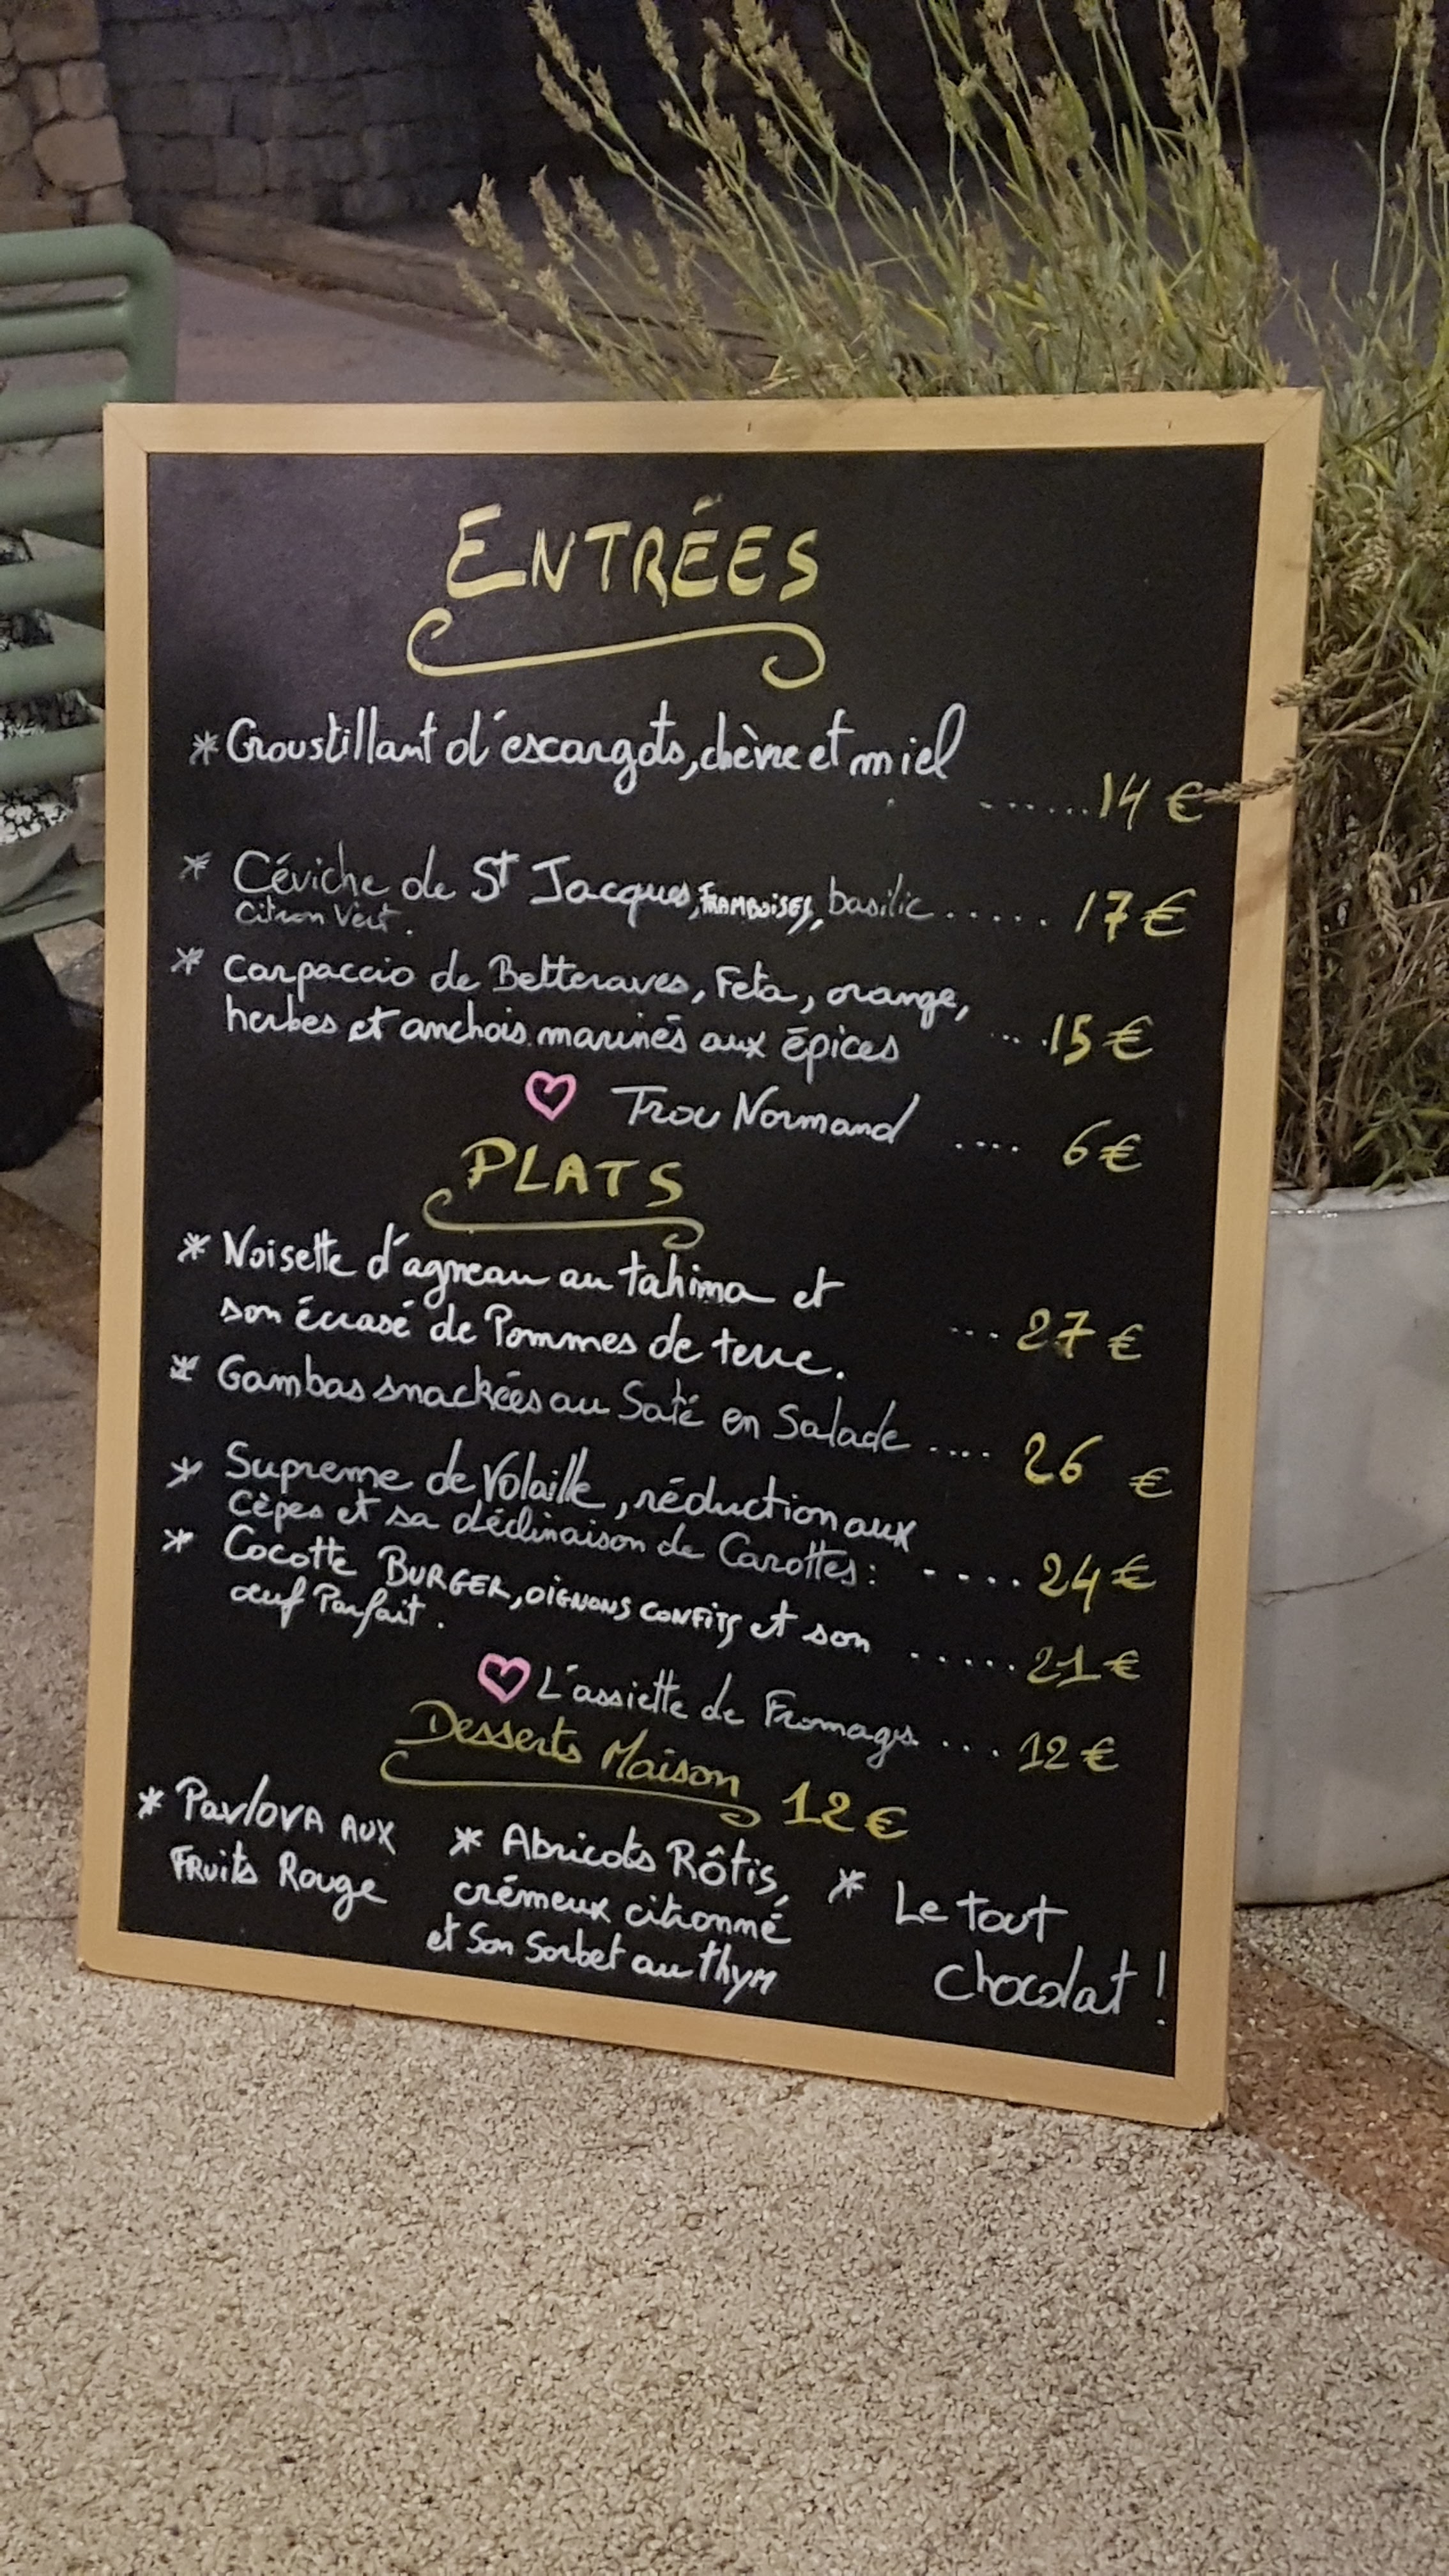 ENTRÉES
* Croustillant d'escargots, chèvre et miel ......14 €
* Céviche de St Jacques, FRAMBOISES, basilic ..... 17 €
Citron Vert.
* Carpaccio de Betteraves, Feta, orange,
herbes et anchois marinés aux épices ....15 €
♡ Trou Normand .... 6 €
PLATS
* Noisette d'agneau au tahima et
son écrasé de Pommes de terre. ... 27 €
* Gambas snackées au Saté en Salade .... 26 €
* Supreme de Volaille, réduction aux
Cèpes et sa déclinaison de Carottes: .... 24 €
* Cocotte BURGER, OIGNONS CONFITS et son ..... 21 €
œuf Parfait.
♡ L'assiette de Fromages ... 12 €
Desserts Maison 12 €
* Pavlova AUX
FRuits Rouge
* Abricots Rôtis,
crémeux citronné
et Son Sorbet au thym
* Le tout
chocolat !